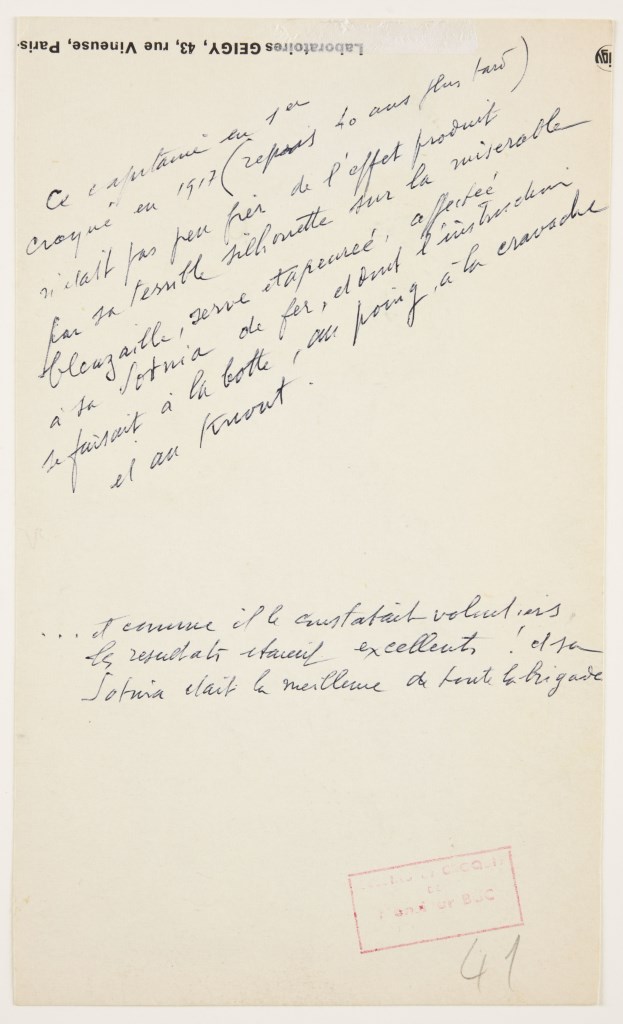 Laboratoires GEIGY, 43, rue Vineuse, Paris-
igy
Ce capitaine en 1er
croqué en 1917 (repris 40 ans plus tard)
n'était pas peu fier de l'effet produit
par sa terrible silhouette sur la misérable
bleuzaille, serve et apeurée, affectée
à sa Sotnia de fer, dont l'instruction
se faisait à la botte, au poing, à la cravache
et au Knout.
... et comme il le constatait volontiers
les resultats étaient excellents ! et sa
Sotnia était la meilleure de toute la brigade
41